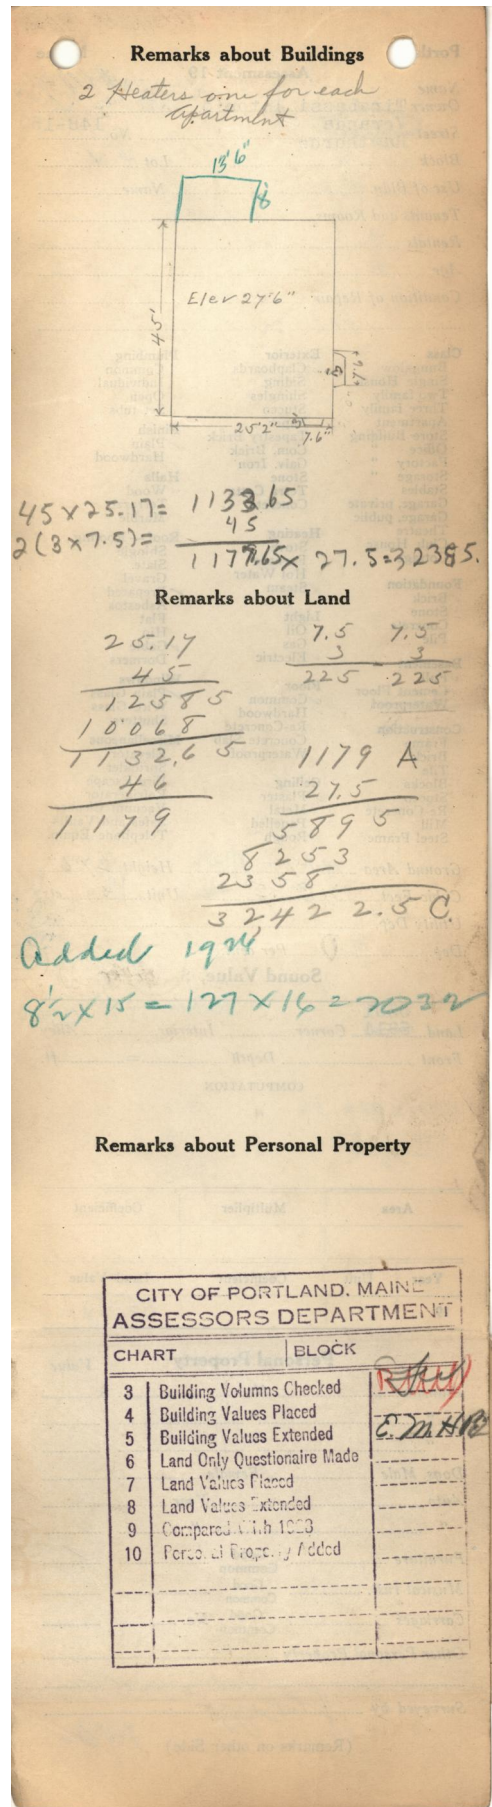 Remarks about Buildings
2 Heaters one for each
apartment
13'6"
8'
Elev 27'6"
45'
25'2"
3
7.6"
3
7.6"
45 x 25.17 = 1132.65
2(3 x 7.5) = 45
1177.65 x 27.5 = 32385.
Remarks about Land
25.17
45
12585
10068
1132.65
46
1179
7.5 7.5
3 3
225 225
1179 A
27.5
5895
8253
2358
32,422.5 C.
Added 1924
8½ x 15 = 127 x 16 = 2032
Remarks about Personal Property
CITY OF PORTLAND, MAINE
ASSESSORS DEPARTMENT
CHART BLOCK
3 Building Volumns Checked
4 Building Values Placed
5 Building Values Extended E.M.H.
6 Land Only Questionaire Made
7 Land Values Placed
8 Land Values Extended
9 Compared With 1923
10 Personal Property Added